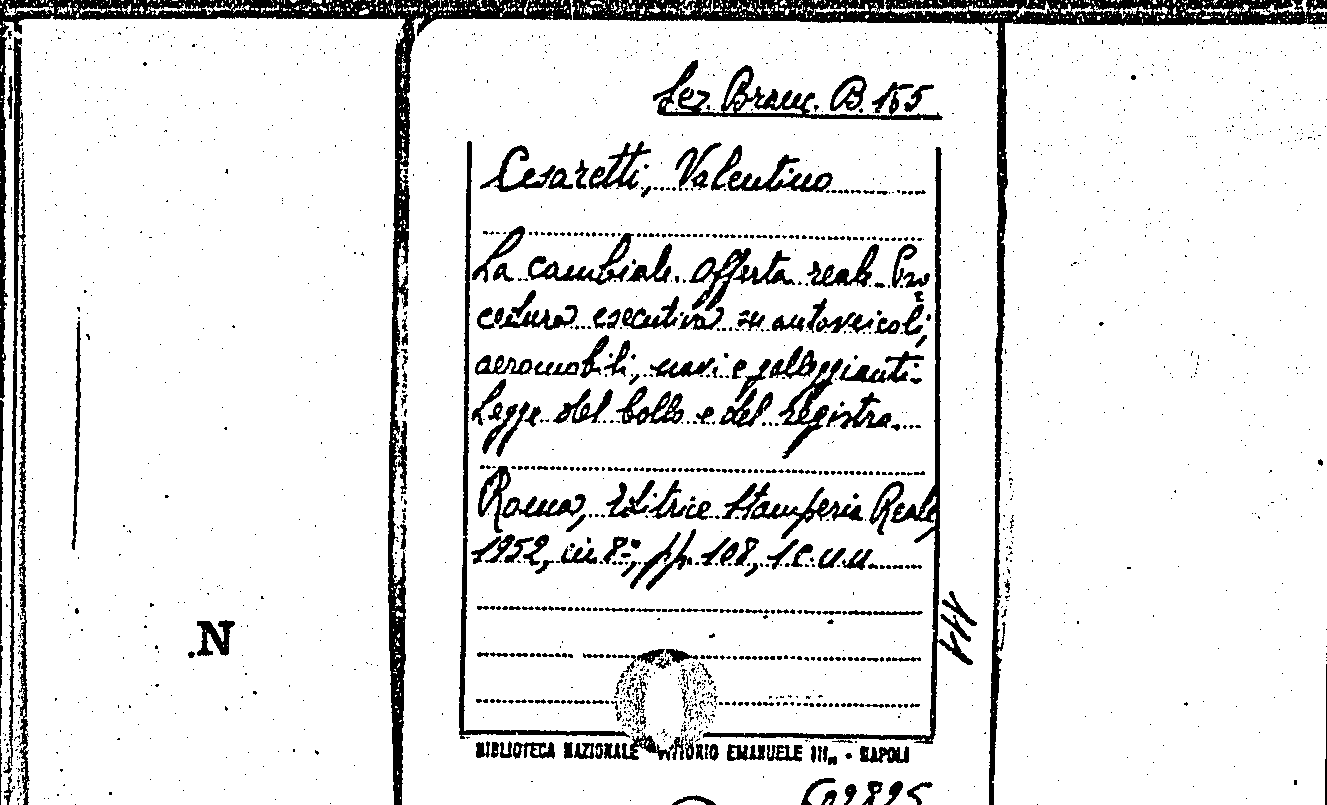 Sez. Branc. B. 155
Cesaretti, Valentino
La cambiale. Offerta reale. Pro=
cedura esecutiva su autoveicoli,
aeromobili, navi e galleggianti.
Legge del bollo e del registro.
Roma, Editrice Stamperia Reale,
1952, in 8.º, pp. 108, 1 c. n. n.
.N
BIBLIOTECA NAZIONALE VITTORIO EMANUELE III,, - NAPOLI